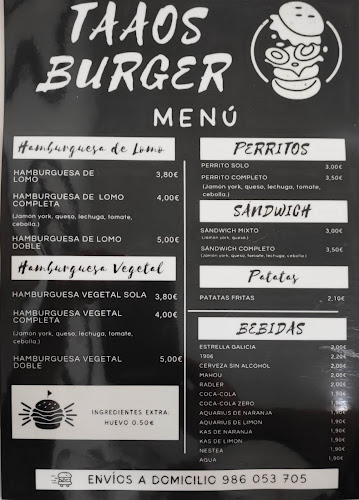 TAAOS
BURGER
MENÚ
Hamburguesa de Lomo
HAMBURGUESA DE
LOMO 3,80€
HAMBURGUESA DE LOMO
COMPLETA 4,00€
(Jamón york, queso, lechuga, tomate,
cebolla.)
HAMBURGUESA DE LOMO
DOBLE 5,00€
Hamburguesa Vegetal
HAMBURGUESA VEGETAL SOLA 3,80€
HAMBURGUESA VEGETAL
COMPLETA 4,00€
(Jamón york, queso, lechuga, tomate,
cebolla.)
HAMBURGUESA VEGETAL
DOBLE 5,00€
INGREDIENTES EXTRA:
HUEVO 0.50€
PERRITOS
PERRITO SOLO 3,00€
PERRITO COMPLETO 3,50€
(Jamón york, queso, lechuga, tomate,
cebolla.)
SÁNDWICH
SANDWICH MIXTO 3,00€
(Jamón york, queso.)
SANDWICH COMPLETO 3,50€
(Jamón york, queso, lechuga, tomate, cebolla.)
Patatas
PATATAS FRITAS 2,10€
BEBIDAS
ESTRELLA GALICIA 2,00€
1906 2,20€
CERVEZA SIN ALCOHOL 2,00€
MAHOU 2,00€
RADLER 2,00€
COCA-COLA 1,90€
COCA-COLA ZERO 1,90€
AQUARIUS DE NARANJA 1,90€
AQUARIUS DE LIMON 1,90€
KAS DE NARANJA 1,90€
KAS DE LIMON 1,90€
NESTEA 1,90€
AGUA 1,90€
ENVÍOS A DOMICILIO 986 053 705